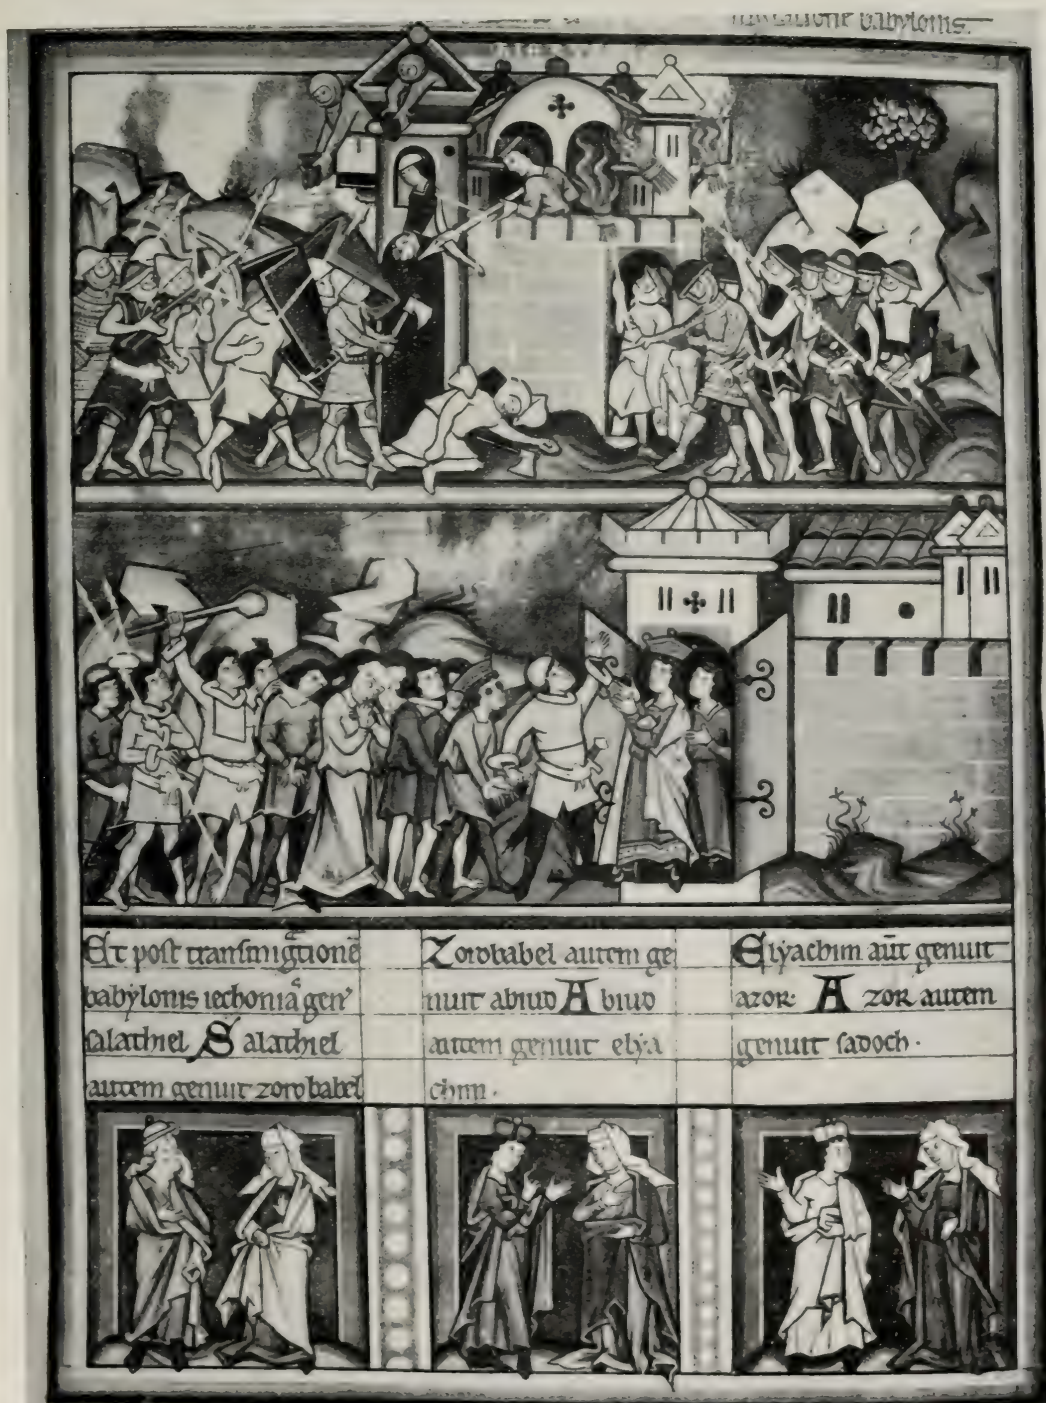 babylonis.
Et post transmigᵃtionē
babylonis iechoniaˢ gen̛
salathiel Salathiel
autem genuit zorobabel
Zorobabel autem ge
nuit abiud Abiud
autem genuit elya
chim.
Elyachim aūt genuit
azor. Azor autem
genuit sadoch.